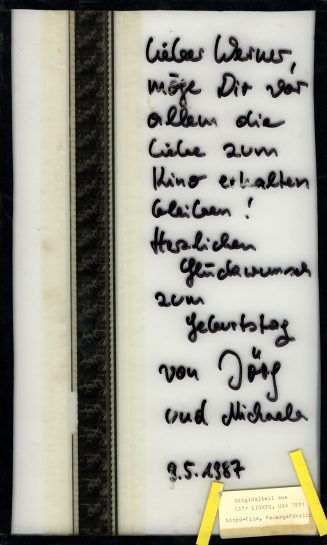 Lieber Werner,
möge Dir vor
allem die
Liebe zum
Kino erhalten
bleiben!
Herzlichen
Glückwunsch
zum
Geburtstag
von Jörg
und Michaela
3.5.1987
Originalteil aus
CITY LIGHTS, USA 1931
Nitro-Film, feuergefährlich